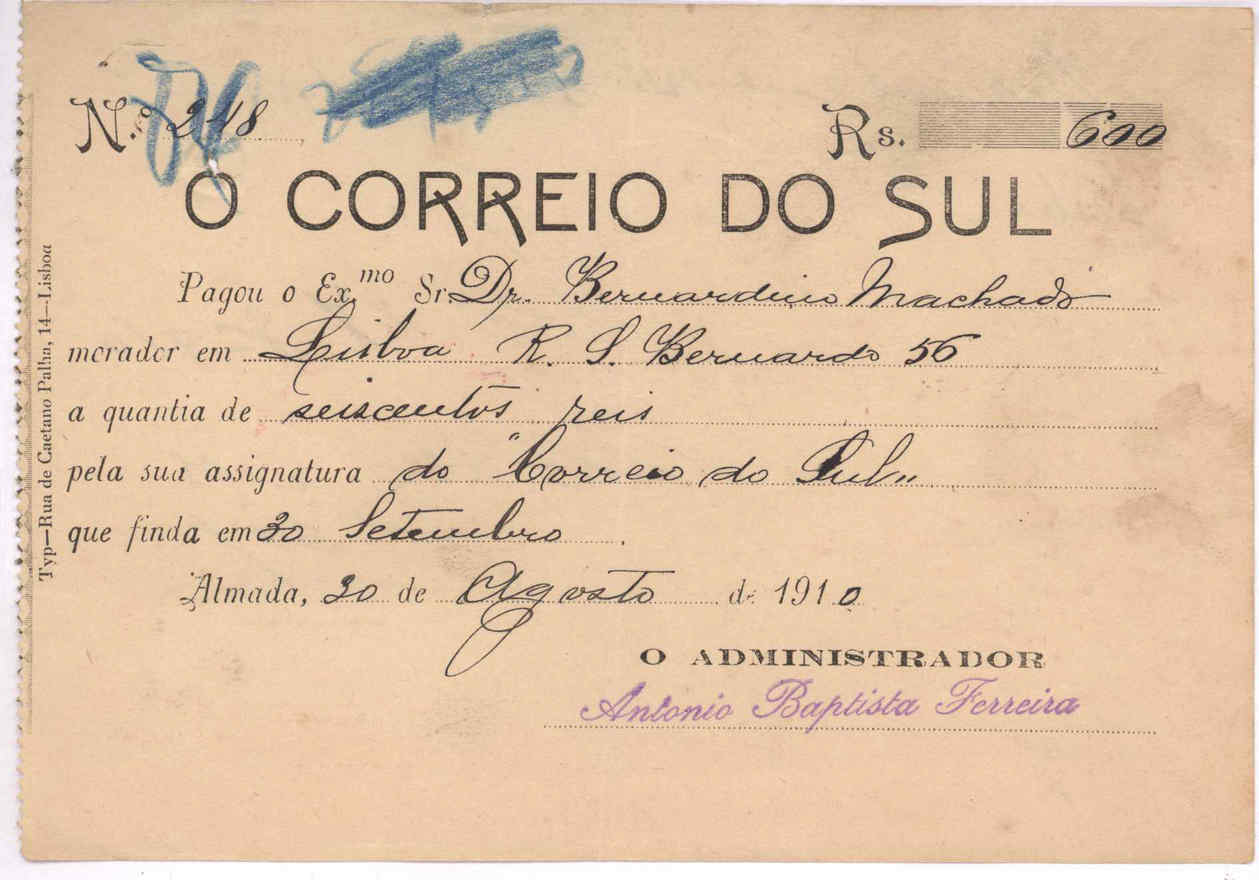 N.ro 248
Rs. 600
O CORREIO DO SUL
Pagou o Ex.mo Sr. Dr. Bernardino Machado
morador em Lisboa R. S. Bernardo 56
a quantia de seiscentos reis
pela sua assignatura do "Correio do Sul"
que finda em 30 Setembro
Almada, 30 de Agosto de 1910
O ADMINISTRADOR
Antonio Baptista Ferreira
Typ—Rua de Caetano Palha, 14—Lisboa